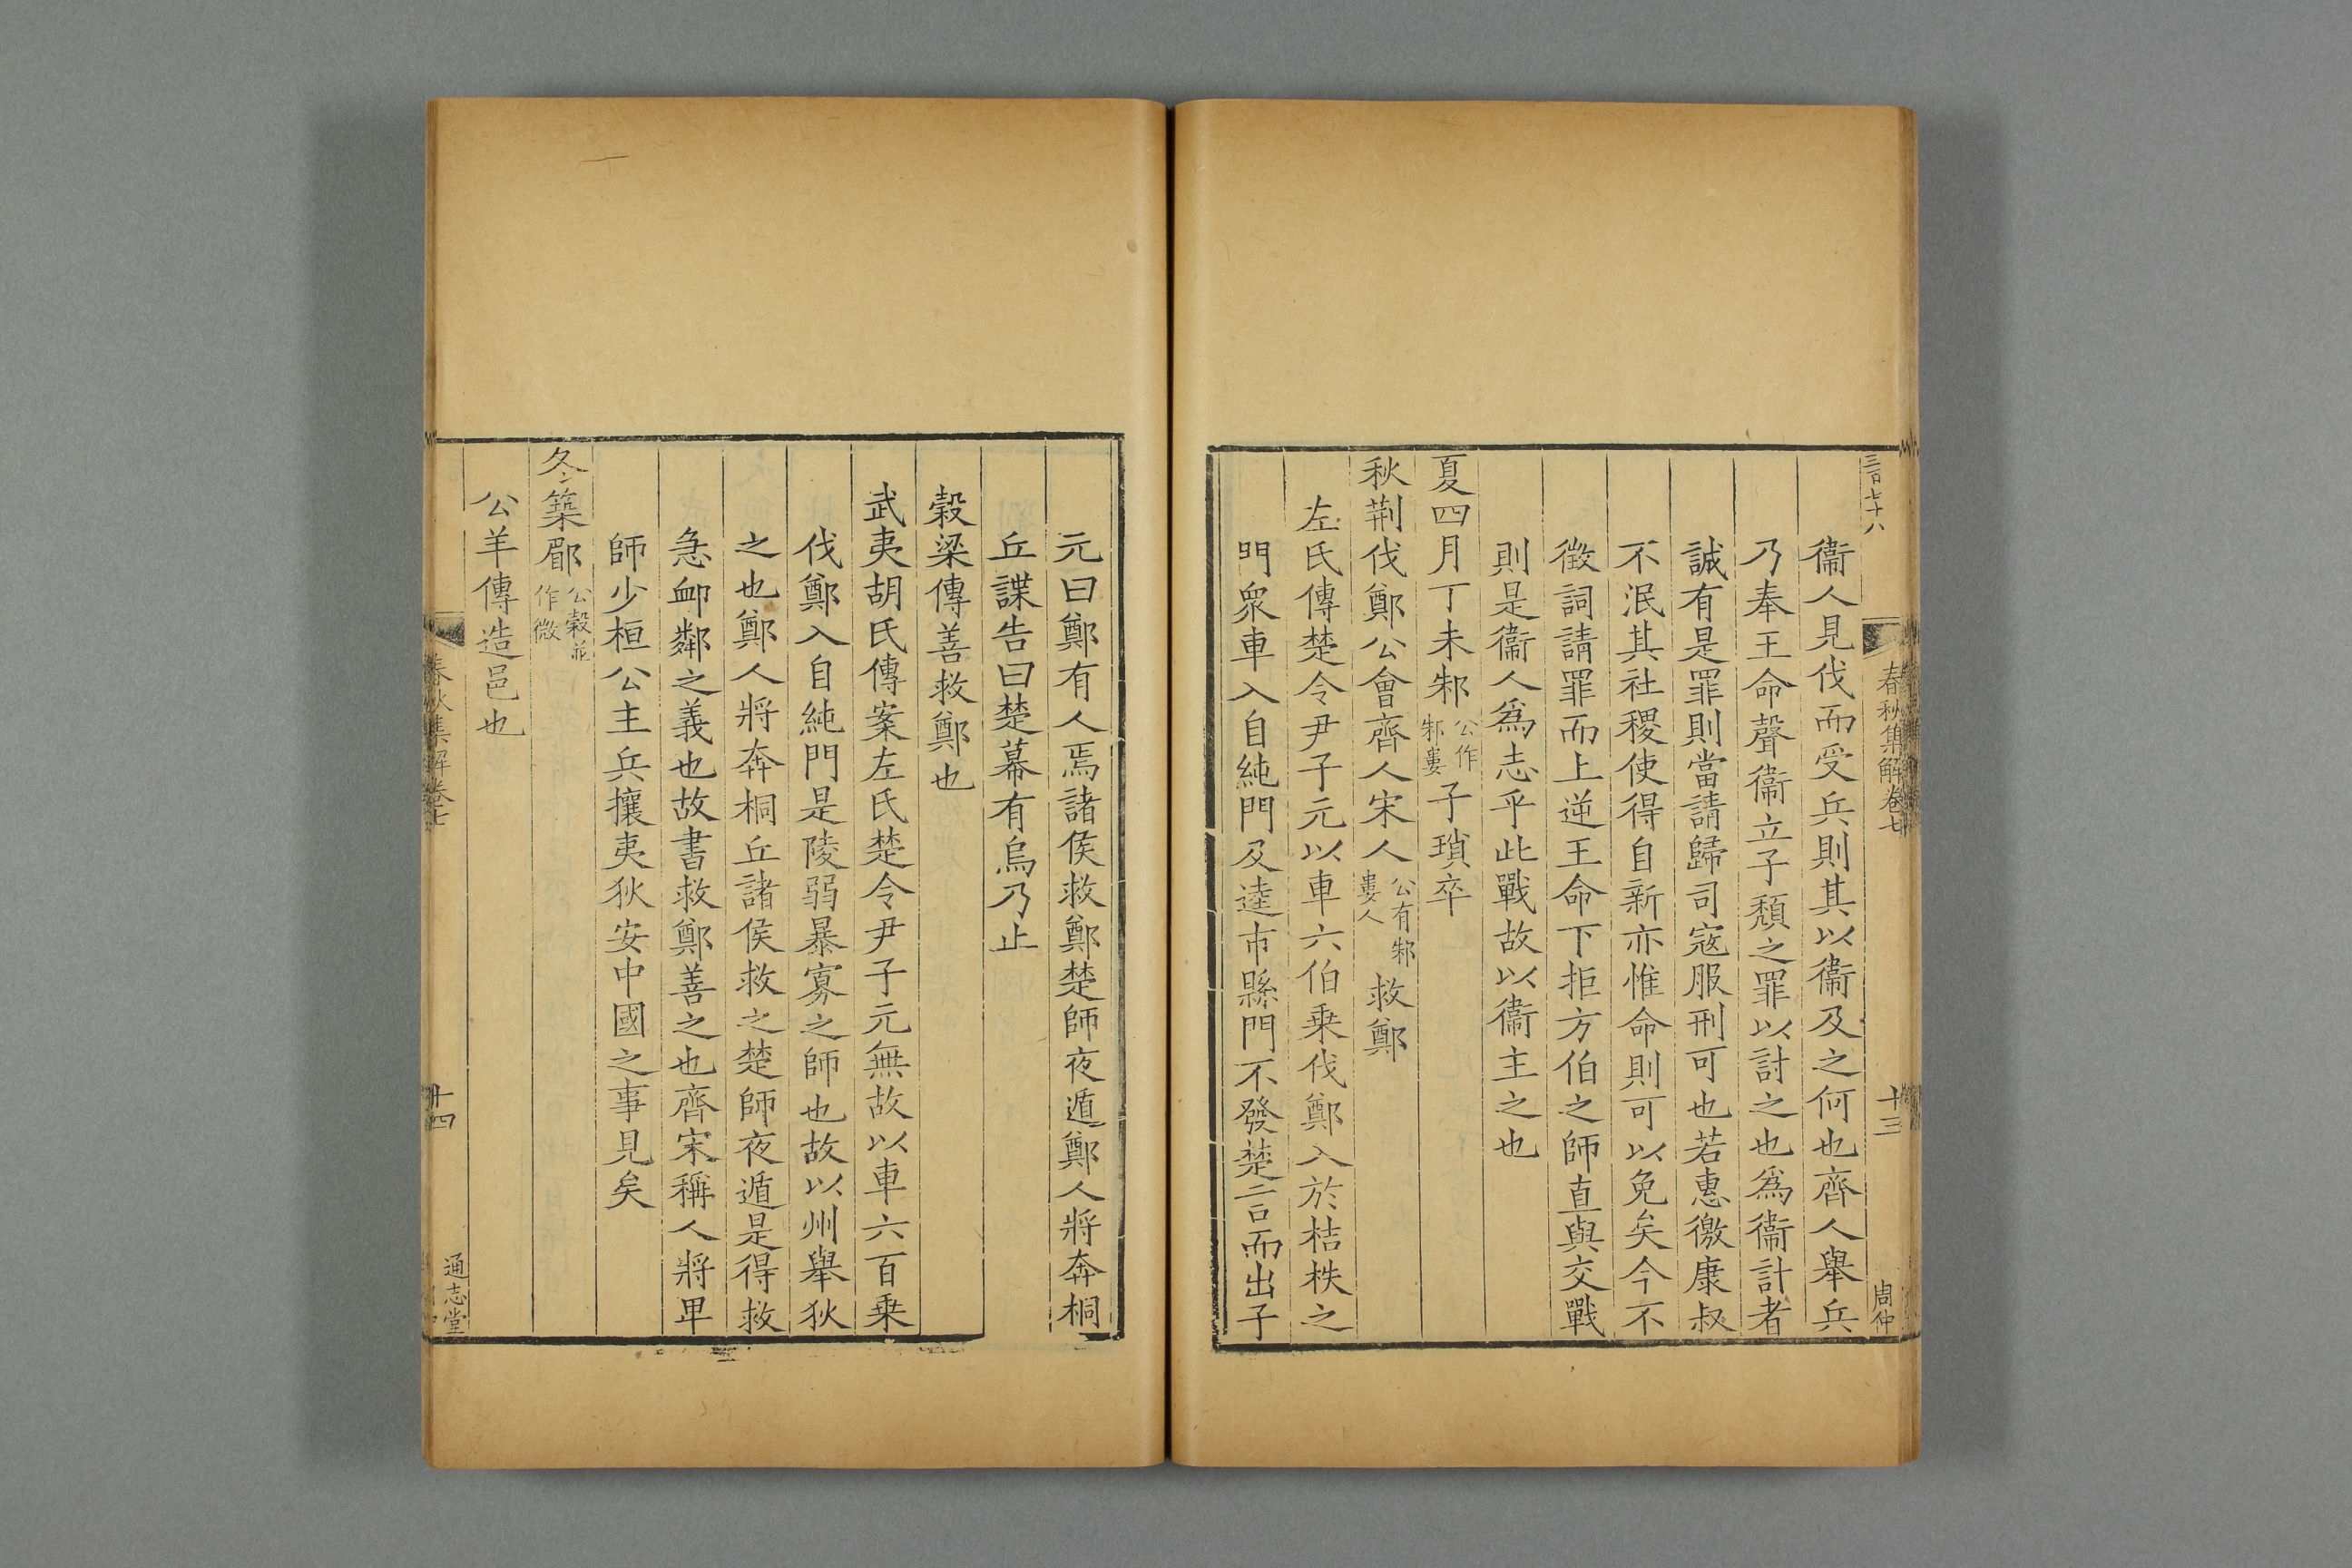 三百七十八
春秋集解卷七
十三
周仲
衞人見伐而受兵則其以衞及之何也齊人舉兵
乃奉王命聲衞立子頹之罪以討之也爲衞計者
誠有是罪則當請歸司寇服刑可也若惠徼康叔
不泯其社稷使得自新亦惟命則可以免矣今不
徵詞請罪而上逆王命下拒方伯之師直與交戰
則是衞人爲志乎此戰故以衞主之也
夏四月丁未邾公作邾婁子瑣卒
秋荆伐鄭公會齊人宋人公有邾婁人救鄭
左氏傳楚令尹子元以車六伯乗伐鄭入於桔柣之
門衆車入自純門及逵市縣門不發楚言而出子
元曰鄭有人焉諸侯救鄭楚師夜遁鄭人將奔桐
丘諜告曰楚幕有烏乃止
穀梁傳善救鄭也
武夷胡氏傳案左氏楚令尹子元無故以車六百乗
伐鄭入自純門是陵弱暴寡之師也故以州舉狄
之也鄭人將奔桐丘諸侯救之楚師夜遁是得救
急卹鄰之義也故書救鄭善之也齊宋稱人將卑
師少桓公主兵攘夷狄安中國之事見矣
冬築郿公穀並作微
公羊傳造邑也
春秋集解卷七
十四
通志堂